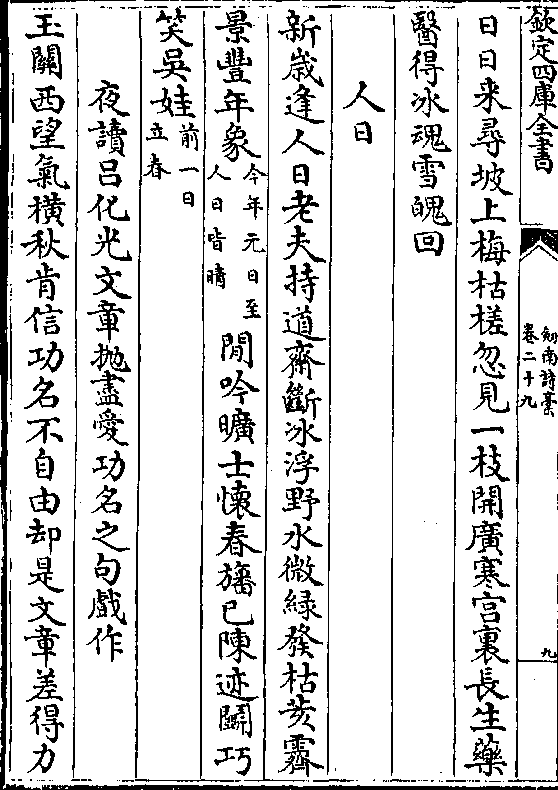 欽定四庫全書
劍南詩藁
卷二十九
九
日日来尋坡上梅枯槎忽見一枝開廣寒宫裏長生藥
醫得冰魂雪魄回
人日
新歲逢人日老夫持道齋斷冰浮野水微緑發枯荄霽
景豐年象今年元日至人日皆晴閒吟曠士懷春旛已陳迹鬭巧
笑吳娃前一日立春
夜讀吕化光文章抛盡愛功名之句戲作
玉關西望氣横秋肯信功名不自由却是文章差得力